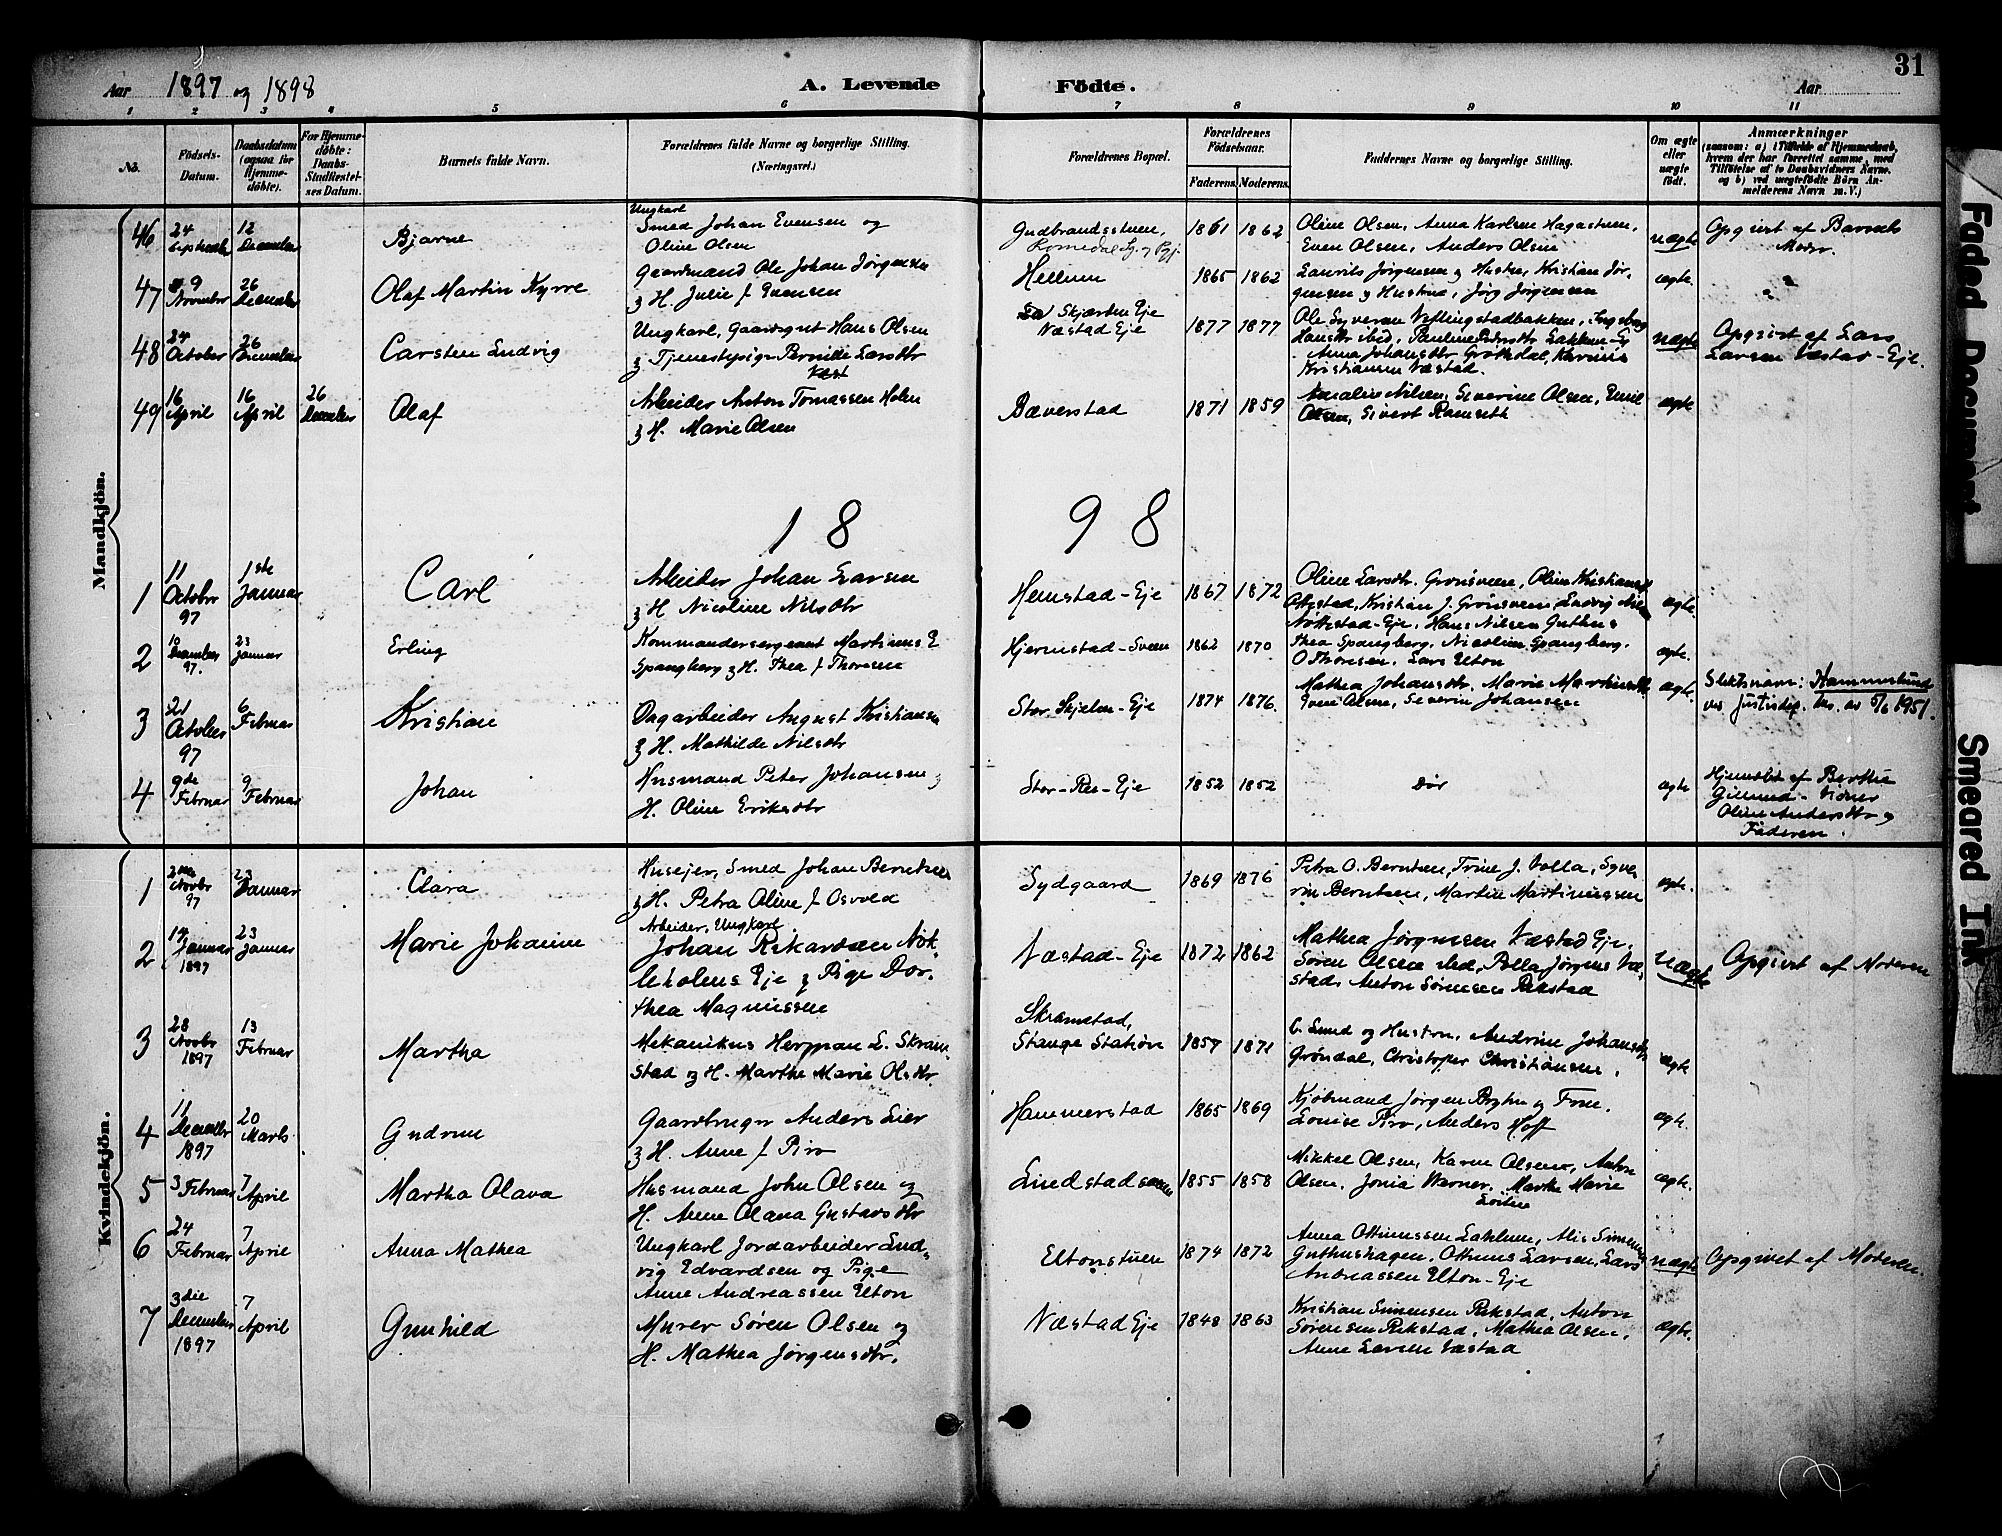 31
Aar 1897 og 1898
A. Levende Födte.
Aar
1 2 3 4 5 6 7 8 9 10 11
No.
Födsels-Datum.
Daabsdatum (ogsaa for Hjemmedöbte).
For Hjemmedöbte: Daabs-Stadfæstelses Datum.
Barnets fulde Navn.
Forældrenes fulde Navne og borgerlige Stilling. (Næringsvei.)
Forældrenes Bopæl.
Forældrenes Födselsaar.
Faderens. Moderens.
Faddernes Navne og borgerlige Stilling.
Om ægte eller uægte födt.
Anmærkninger (saasom: a) i Tilfælde af Hjemmedaab, hvem der har forrettet samme, med Tilföielse af to Daabsvidners Navne. og b) ved uægtefödte Börn Anmelderens Navn m. V.)
Mandkjön.
46 24 September 12 December Bjarne Ungkarl Smed Johan Evensen og Oline Olsen Gudbrandsstuen, Romedal 1861 1862 Oline Olsen, Anna Karlsen Hagastuen, Even Olsen, Anders Olsen uægte Opgivet af Barnets Moder.
47 9 November 26 December Olaf Martin Kyrre Gaardmand Ole Johan Jörgensen & H. Julie f. Evensen Hellum 1865 1862 Laurits Jörgensen og Hustru, Kristian Jörgensen og Hustru, Jörg Jörgensen ægte.
48 24 October 26 December Carsten Ludvig Ungkarl, Gaardsgut Hans Olsen & Tjenestepige Pernille Larsdtr Skjærden Eje Næstad Eje 1877 1877 Ole Syversen Veflingstadbakken, Ingeborg Hansdtr ibid, Pauline Pedersdtr Anna Johansdtr Grötkdal, Kristiansen Næstad. uægte Opgivet af Lars Larsen Næstad-Eje.
49 16 April 16 April 26 December Olaf Arbeider Anton Tomassen Holen & H. Marie Olsen Bæverstad 1871 1859 Nilsen, Severine Olsen, Emil Olsen, Sivert Ramseth ægte
1898
1 11 October 97 1ste Januar Carl Arbeider Johan Larsen & H. Nicoline Nilsdtr Hemstad-Eje 1867 1872 Oline Larsdtr. Grönsveen, Oline Kristians Ottestad, Kristian J. Grönsveen, Ludvig Nilsen Nöttestad-Eje, Hans Nilsen Guthus ægte.
2 10 December 97. 23 Januar Erling Kommandersergeant Martinius E Spangberg & H. Thea f. Thoresen Hjermstad-Sveen 1862 1870 Thea Spangberg, Nicoline Spangberg. O Thoresen. Lars Elton ægte.
3 21 October 97 6 Februar Kristian Dagarbeider August Kristiansen & H. Mathilde Nilsdtr Stor Skjelm-Eje 1874 1876. Mathea Johansdtr. Marie Martinsdtr Even Olsen, Severin Johansen ægte. Slektsnavn: Hammerlund ved Justisdep. bev. av 5/6 1951.
4 9de Februar 9 Februar Johan Husmand Peter Johansen & H. Oline Eriksdtr Stor-Ree-Eje 1852 1852 Dör ægte Hjemdöbt af Berthe Gillund- Oline Andersdtr og Faderen.
Kvindekjön.
1 2den Novbr 97 23 Januar Clara Husejer, Smed Johan Berntsen & H. Petra Oline f. Osvold Sydgaard 1869 1876 Petra O. Berntsen, Trine J. Volla, Syverin Berntsen, Martin Martinussen ægte.
2 14 Januar 1897 23 Januar Marie Johanne Arbeider, Ungkarl. Johan Rikardsen Nöklekolens Eje & Pige Dorthea Magnussen Næstad-Eje 1872 1862 Mathea Jörgensen Næstad Eje. Sören Olsen ibid, Polla Jörgens Næstad, Anton Sörensen Rekstad uægte Opgivet af Moderen
3 28 Novbr 1897 13 Februar Martha Mekanikus Herman L. Skramstad og H. Marthe Marie Olsdtr. Skramstad, Stange Station 1857 1871 C. Lund og Hustru. Andrine Johansdtr Gröndal, Christopher Christiansen. ægte.
4 11 December 1897 20 Marts Gudrun Gaardbruger Anders Lier & H. Anne f. Piro Hammerstad 1865 1869 Kjöbmand Jörgen Bryhn og Frue. Louise Piro, Anders Hoff ægte.
5 3 Februar 7 April Martha Olava Husmand John Olsen og H. Anne Olava Gustavsdtr Lindstadsveen 1855 1858 Mikkel Olsen, Karen Olsen, Anton Olsen. Jonia Warner. Marthe Marie Löiten ægte.
6 24 Februar 7 April Anna Mathea Ungkarl Jordarbeider Ludvig Edvardsen og Pige Anne Andreassen Elton Eltonstuen 1874 1872 Anna Ottinussen Laklum, Nis Simensen Guthushagen, Ottinus Larsen, Lars Andreassen Elton-Eje uægte Opgivet af Moderen.
7 3die December 1897 7 April Gunhild Murer Sören Olsen og H. Mathea Jörgensdtr. Næstad Eje 1848 1863 Kristian Simensen Rekstad, Anton Sörensen Rekstad, Mathea Olsen, Anne Larsen Næstad ægte.
Faded Document
Smeared Ink